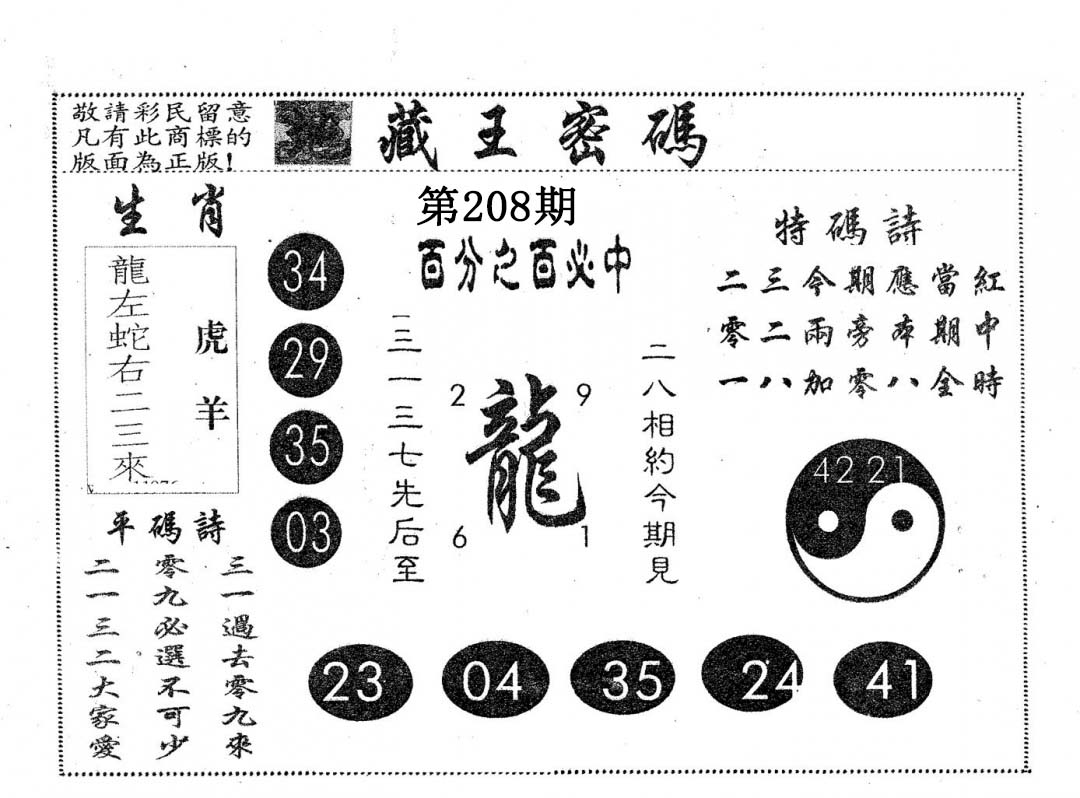 敬請彩民留意
凡有此商標的
版面為正版!
藏王密碼
第208期
百分之百必中
生肖
龍左蛇右二三來
虎羊
34
29
35
03
三一三七先后至
2 9
龍
6 1
二八相約今期見
特碼詩
二三今期應當紅
零二兩旁本期中
一八加零八全時
42 21
平碼詩
三一過去零九來
零九必選不可少
二一三二大家愛
23 04 35 24 41